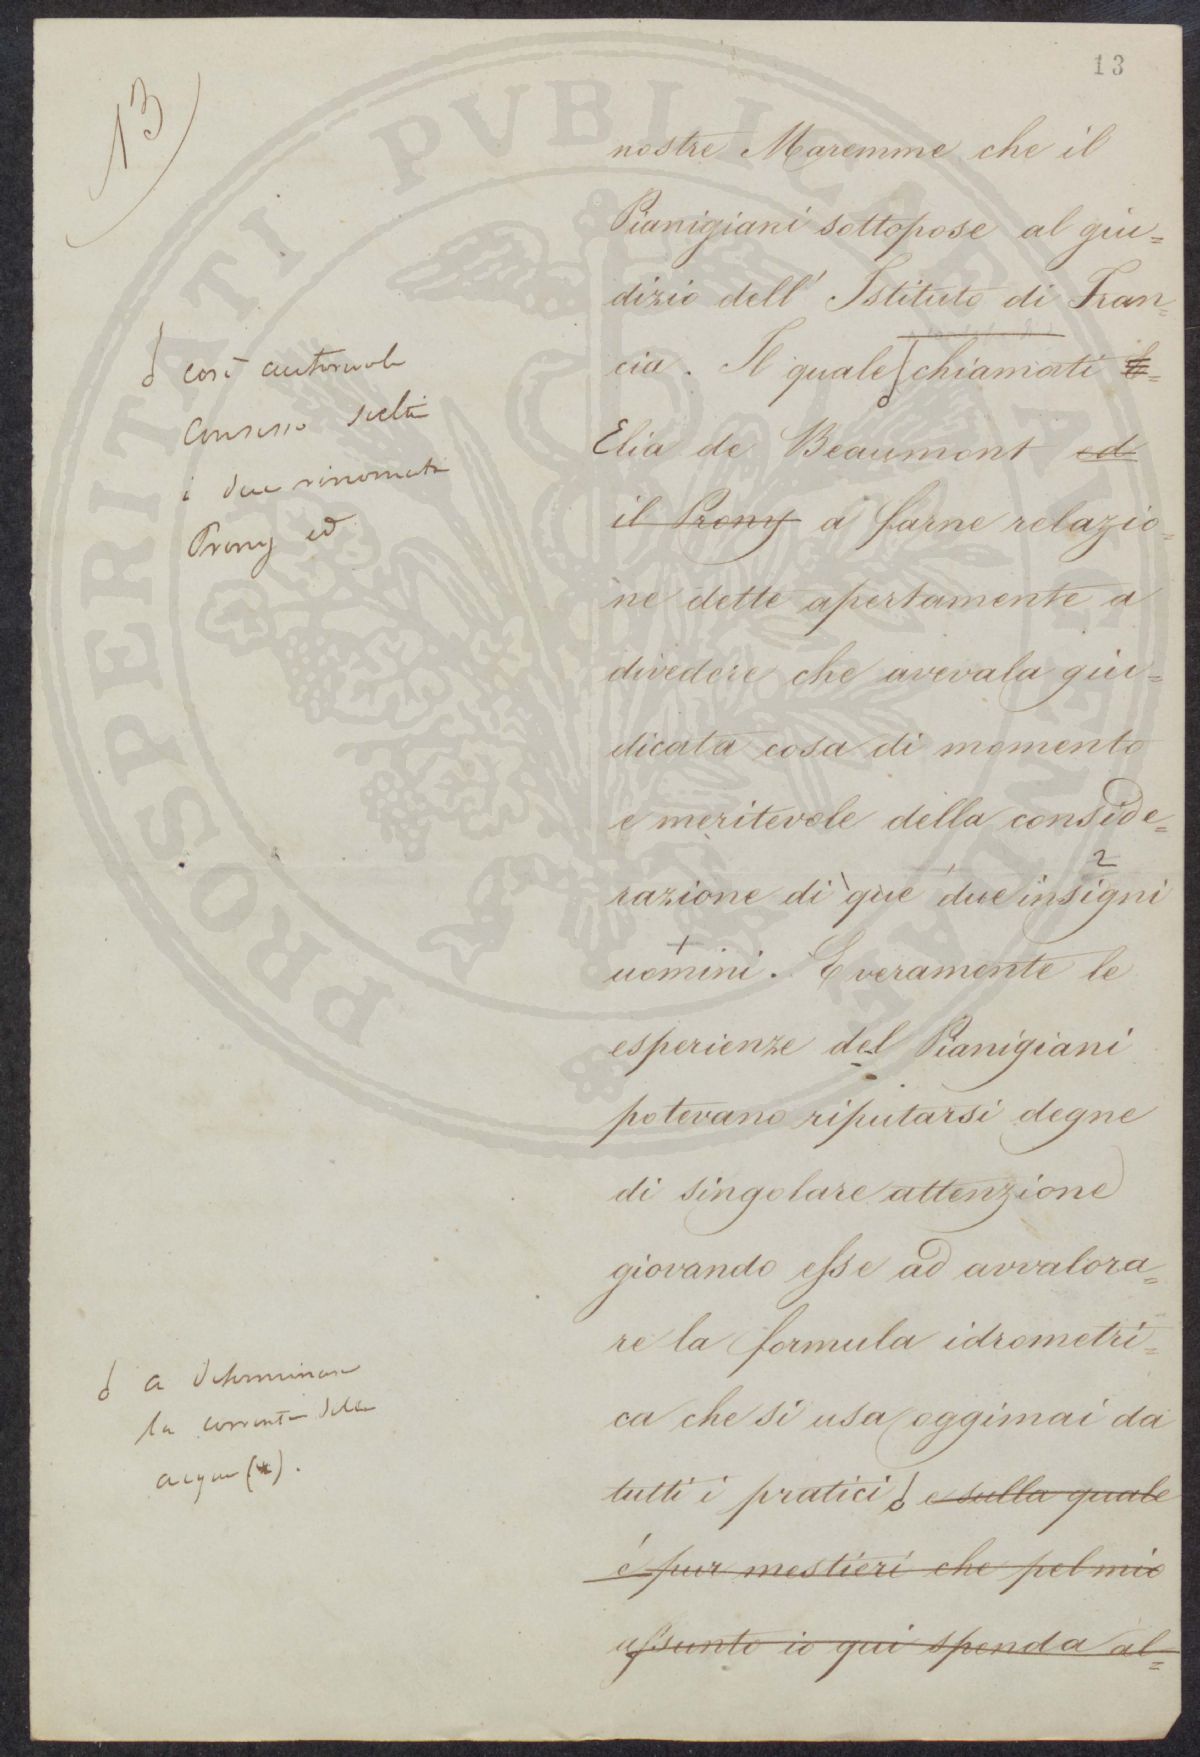 13
13
nostre Maremme che il
Pianigiani sottopose al giu=
dizio dell' Istituto di Fran=
cia. Il quale chiamati
Elia de Beaumont ed
il Prony a farne relazio=
ne dette apertamente a
divedere che avevala giu=
dicata cosa di momento
e meritevole della conside=
razione di que' due insigni
2
uomini. E veramente le
esperienze del Pianigiani
potevano riputarsi degne
di singolare attenzione
giovando esse ad avvalora=
re la formula idrometri=
ca che si usa oggimai da
tutti i pratici e sulla quale
è pur mestieri che pel mio
assunto io qui spenda al=
così autorevole
Consesso scelti
i due rinomati
Prony ed
a determinare
la corrente delle
acque (*).
PROSPERITATI PVBLICAE AVGENDAE